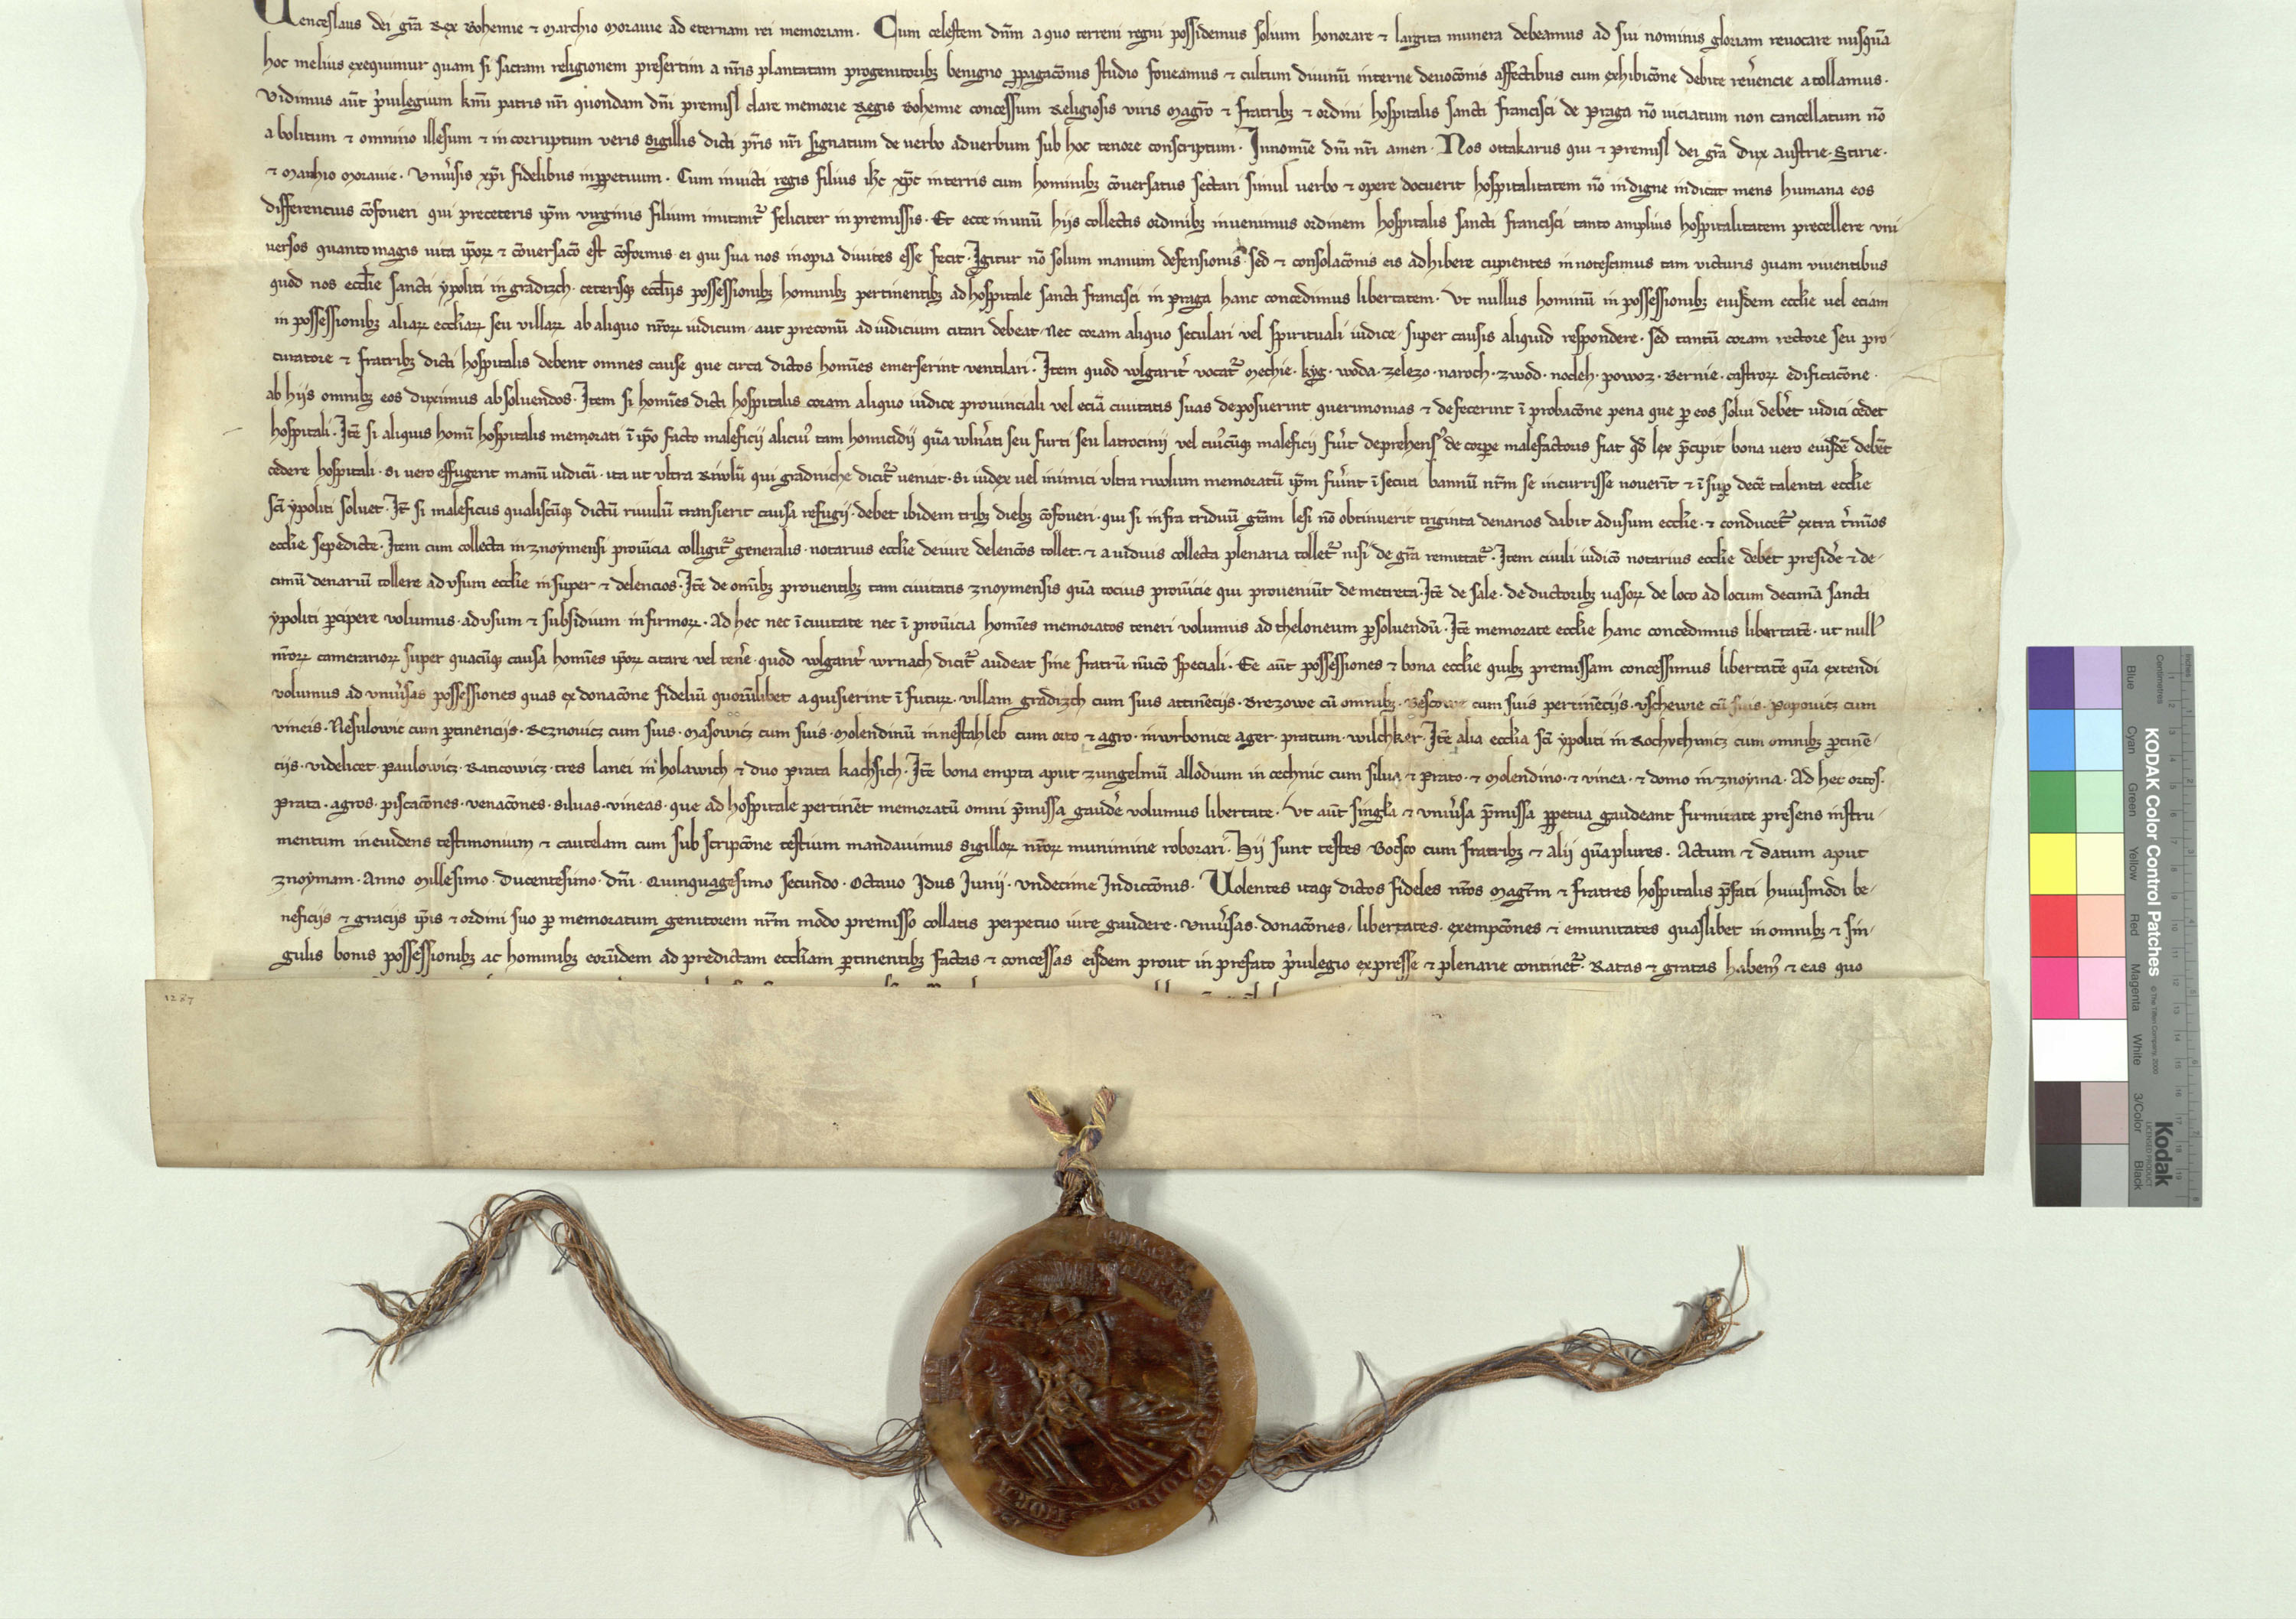 Uenceslaus dei gr̄a Rex Bohemie ⁊ Marchio Morauie ad eternam rei memoriam. Cum celestem dn̄m a quo terreni regni possidemus solium honorare ⁊ largita munera debeamus ad sui nominis gloriam reuocare nusquā
hoc melius exequimur quam si sacram religionem presertim a nr̄is plantatam progenitoribꝫ benigno ꝓpagacōnis studio foueamus ⁊ cultum diuinū interne deuocōnis affectibus cum exhibicōne debite reu̓encie attollamus.
Vidimus aūt p̓uilegium kmi̅ patris nr̄i quondam dn̄i premisl clare memorie Regis Bohemie concessum Religiosis viris Magr̄o ⁊ fratribꝫ ⁊ ordini hospitalis sancti francisci de Praga nō uiciatum non cancellatum nō
abolitum ⁊ omnino illesum ⁊ incorruptum veris sigillis dicti pr̄is nr̄i signatum de uerbo aduerbum sub hoc tenore conscriptum. Innomīe dn̄i nr̄i amen. Nos ottakarus qui ⁊ premisl dei gr̄a Dux Austrie. Stirie.
⁊ Marchio Morauie. Vniu̓sis xp̄i fidelibus inꝑpetuum. Cum inuicti regis filius ih̄c xp̄c interris cum hominibꝫ cōuersatus sectari simul uerbo ⁊ opere docuerit hospitalitatem nō indigne indicat mens humana eos
differencius cōfoueri qui preceteris ip̄m virginis filium imitant᷑ feliciter inpremissis. Et ecce inunū hijs collectis ordinibꝫ inuenimus ordinem hospitalis sancti francisci tanto amplius hospitalitatem precellere vni
uersos quanto magis uita ip̄oꝝ ⁊ cōuersacō est cōformis ei qui sua nos inopia diuites esse fecit. Igitur nō solum manum defensionis sed ⁊ consolacōnis eis adhibere cupientes innotescimus tam victuris quam viuentibus
quod nos eccl̄ie sancti ypoliti in gradizch. ceterisqꝫ eccl̄ijs possessionibꝫ hominibꝫ pertinentibꝫ ad hospitale sancti francisci in praga hanc concedimus libertatem. Vt nullus hominū in possessionibꝫ eiusdem eccl̄ie uel eciam
in possessionibꝫ aliaꝝ eccl̄iaꝝ seu villaꝝ ab aliquo nr̄oꝝ iudicum. aut preconū ad iudicium citari debeat. Nec coram aliquo seculari vel spirituali iudice. super causis aliquid respondere. sed tantū coram rectore seu pro
curatore ⁊ fratribꝫ dicti hospitalis debent omnes cause que circa dictos homīes emerserint ventilari. Item quod wlgarit̓ vocat᷑ Mechie. kyg. woda. zelezo. naroch. zwod. nocleh. powoz. Bernie. castroꝝ edificacōne.
ab hijs omnibꝫ eos duximus absoluendos. Item si homīes dicti hospitalis coram aliquo iudice prouinciali vel eciā ciuitatis suas deposuerint querimonias ⁊ defecerint ī probacōne pena que ꝑ eos solui deb̓et iudici cedet
hospitali. Itē si aliquis homū hospitalis memorati ī ip̄o facto maleficij alicui᷒ tam homicidij quā wln̓ati seu furti seu latrocinij vel cui᷒cūqꝫ maleficij fu̓it deprehens᷒ de corꝑe malefactoris fiat qd̄ lex p̄cipit bona uero eiusdē debēt
cedere hospitali. si vero effugerit manū iudicū. ita ut ultra Riuulū qui gradniche dicit᷑ ueniat. si iudex uel inimici ultra riuulum memoratū ip̄m fu̓int īsecuti bannū nr̄m se incurrisse nouerīt ⁊ īsuꝑ decē talenta eccl̄ie
sc̄i ypoliti soluet. It̄ si maleficus qualiscūqꝫ dictū riuulū transierit causa refugij. debet ibidem tribꝫ diebꝫ cōfoueri. qui si infra triduū gr̄am lesi nō obtinuerit triginta denarios dabit adusum eccl̄ie. ⁊ conducet᷑ extra t̓mīos
eccl̄ie sepedicte. Item cum collecta in znoymensi prouīcia colligit᷑ generalis. notarius eccl̄ie deiure delencōs tollet. ⁊ a uiduis collecta plenaria tollet᷑ nisi de gr̄a remittat᷑. Item ciuili iudicō notarius eccl̄ie debet presid̓e ⁊ de-
cimū denariū tollere ad vsum eccl̄ie insuper ⁊ delencios. Itē de om̄ibꝫ prouentibꝫ tam ciuitatis znoymensis quā tocius prouīcie qui proueniūt de metreta. Itē de sale. de ductoribꝫ uasoꝝ de loco ad locum decimā sancti
ypoliti ꝑcipere volumus. ad vsum ⁊ subsidium infirmoꝝ. Ad hec nec ī ciuitate nec ī prouīcia homīes memoratos teneri volumus ad theloneum ꝑsoluendū. Itē memorate eccl̄ie hanc concedimus libertatē. ut null᷒
nr̄oꝝ camerarioꝝ super quacūqꝫ causa homīes ip̄oꝝ citare vel ten̓e. quod wlgarit̓ wrnach dicit᷑ audeat sine fratrū nūcō speciali. Ee aūt possessiones ⁊ bona eccl̄ie quibꝫ premissam concessimus libertatē quā extendi
volumus ad vniu̓sas possessiones quas ex donacōne fideliū quorūlibet aquisierint ī futuꝝ. villam gradizch cum suis attinēcijs. Brezowe cū omnibꝫ. cum suis pertinēcijs. vschewie cū suis. Popouicz cum
vineis. Nesulowic cum ꝑtinencijs. Beznouicz cum suis. Masowicz cum suis. Molendinū innestahleb cum orto ⁊ agro. inwrbonice ager. pratum. wilchker. Itē alia eccl̄ia sc̄i ypoliti in Rochychwicz cum omnibꝫ ꝑtinē-
cijs. videlicet. Paulowicz. Raticowicz. tres lanei in holawich ⁊ duo prata kachsich. Itē bona empta aput zungelmū allodium in cechnic cum silua ⁊ prato. ⁊ Molendino. ⁊ vinea. ⁊ domo in znoyma. Ad hec ortos.
prata. agros. piscacōnes. venacōnes. siluas. vineas. que ad hospitale pertinēt memoratū omni p̄missa gaud̓e volumus libertate. Vt aūt singl̄a ⁊ vniu̓sa p̄missa ꝑpetua gaudeant firmitate presens instru-
mentum ineuidens testimonium ⁊ cautelam cum subscripcōne testium mandauimus sigilloꝝ nr̄oꝝ munimine roborari. Hij sunt testes Bocsco cum fratribꝫ ⁊ alij quāplures. Actum ⁊ datum aput
znoymam. Anno Millesimo. Ducentesimo. dn̄i. Quinquagesimo secundo. Octauo Idus Iunij. vndecime Indiccōnis. Uolentes itaqꝫ dictos fideles nr̄os Magr̄m ⁊ fratres hospitalis p̄fati huiusmodi be-
neficijs ⁊ gracijs ip̄is ⁊ ordini suo ꝑ memoratum genitorem nr̄m modo premisso collatis perpetuo iure gaudere. vniu̓sas. donacōnes. libertates. exempcōnes ⁊ emunitates quaslibet in omnibꝫ ⁊ sin-
gulis bonis possessionibꝫ ac hominibꝫ eorūdem ad predictam eccl̄iam ꝑtinentibꝫ factas ⁊ concessas eisdem prout in prefato p̓uilegio expresse ⁊ plenarie continet᷑. Ratas ⁊ gratas habem᷒ ⁊ eas quo
1287
KODAK Color Control Patches
© The Tiffen Company, 2000
Kodak
LICENSED PRODUCT
Inches
Centimetres
Blue
Cyan
Green
Yellow
Red
Magenta
White
3/Color
Black